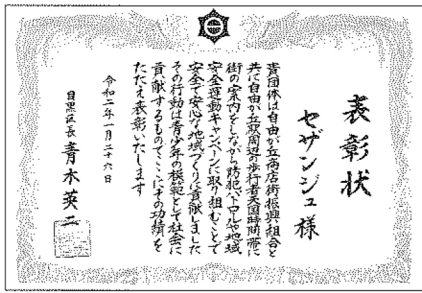 表彰状
セザンジュ様
貴団体は自由が丘商店街振興組合と
共に自由が丘駅周辺の歩行者天国時間帯に
街の案内をしながら防犯パトロールや地域
安全運動キャンペーンに取り組むことで
安全で安心な地域づくりに貢献しました
その行動は青少年の模範として社会に
貢献するものでここにその功績を
たたえ表彰いたします
令和二年一月二十六日
目黒区長 青木英二